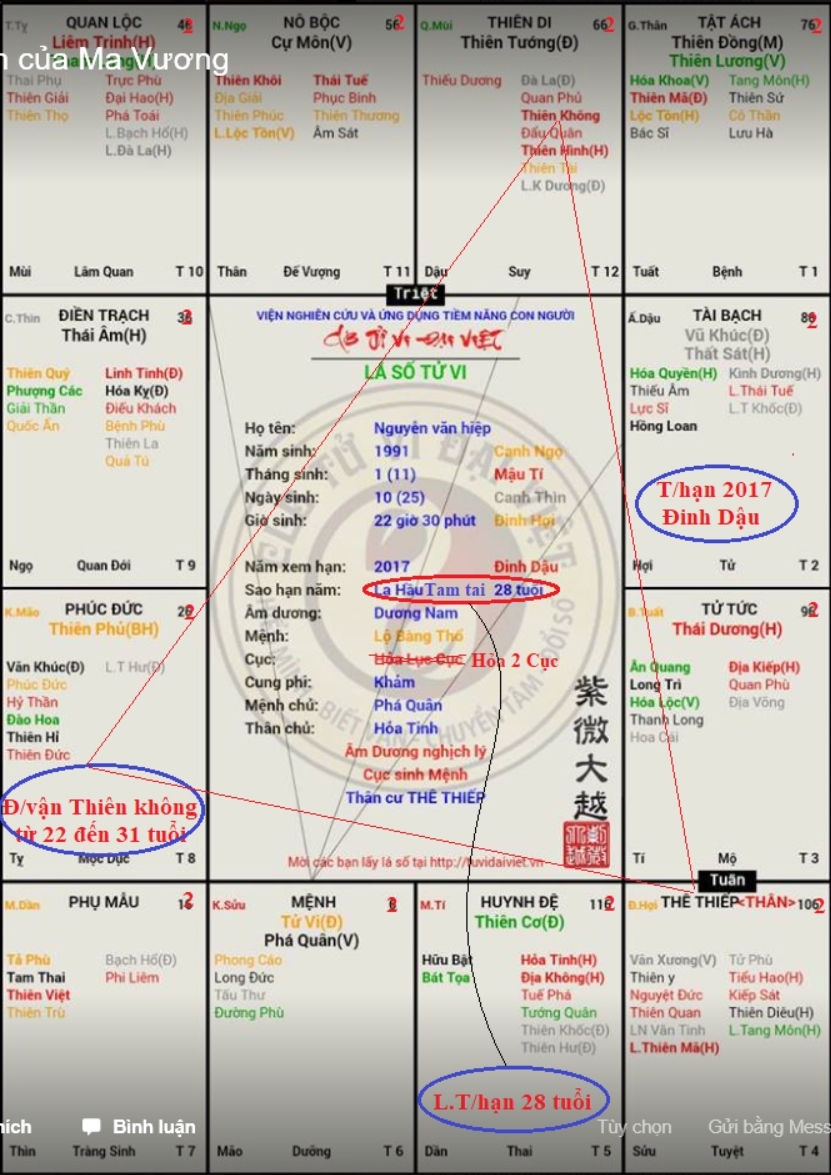 n của Ma Vương
T.Tỵ QUAN LỘC 2
Liêm Trinh(H)
Thai Phụ Trực Phù
Thiên Giải Đại Hao(H)
Thiên Thọ Phá Toái
L.Bạch Hổ(H)
L.Đà La(H)
Mùi Lâm Quan T 10
N.Ngọ NÔ BỘC 2
Cự Môn(V)
Thiên Khôi Thái Tuế
Địa Giải Phục Binh
Thiên Phúc Thiên Thương
L.Lộc Tồn(V) Âm Sát
Thân Đế Vượng T 11
Q.Mùi THIÊN DI 2
Thiên Tướng(Đ)
Thiếu Dương Đà La(Đ)
Quan Phủ
Thiên Không
Đẩu Quân
Thiên Hình(H)
Thiên Tài
L.K Dương(Đ)
Dậu Suy T 12
G.Thân TẬT ÁCH 2
Thiên Đồng(M)
Thiên Lương(V)
Hóa Khoa(V) Tang Môn(H)
Thiên Mã(Đ) Thiên Sứ
Lộc Tồn(H) Cô Thần
Bác Sĩ Lưu Hà
Tuất Bệnh T 1
Triệt
C.Thìn ĐIỀN TRẠCH 2
Thái Âm(H)
Thiên Quý Linh Tinh(Đ)
Phượng Các Hóa Kỵ(Đ)
Giải Thần Điếu Khách
Quốc Ấn Bệnh Phù
Thiên La
Quả Tú
Ngọ Quan Đới T 9
VIỆN NGHIÊN CỨU VÀ ỨNG DỤNG TIỀM NĂNG CON NGƯỜI
LÁ SỐ TỬ VI
Họ tên: Nguyễn văn hiệp
Năm sinh: 1991 Canh Ngọ
Tháng sinh: 1 (11) Mậu Tí
Ngày sinh: 10 (25) Canh Thìn
Giờ sinh: 22 giờ 30 phút Đinh Hợi
Năm xem hạn: 2017 Đinh Dậu
Sao hạn năm: La Hầu Tam tai 28 tuổi
Âm dương: Dương Nam
Mệnh: Lộ Bàng Thổ
Cục: Hỏa Lục Cục Hỏa 2 Cục
Cung phi: Khảm
Mệnh chủ: Phá Quân
Thân chủ: Hỏa Tinh
Âm Dương nghịch lý
Cục sinh Mệnh
Thân cư THÊ THIẾP
紫微大越
Mời các bạn lấy lá số tại http://tuvidaiviet.vn
Ấ.Dậu TÀI BẠCH 2
Vũ Khúc(Đ)
Thất Sát(H)
Hóa Quyền(H) Kình Dương(H)
Thiếu Âm L.Thái Tuế
Lực Sĩ L.T Khốc(Đ)
Hồng Loan
T/hạn 2017
Đinh Dậu
Hợi Tử T 2
K.Mão PHÚC ĐỨC 2
Thiên Phủ(BH)
Văn Khúc(Đ) L.T Hư(Đ)
Phúc Đức
Hỷ Thần
Đào Hoa
Thiên Hỉ
Thiên Đức
Đ/vận Thiên không
từ 22 đến 31 tuổi
Tỵ Mộc Dục T 8
B.Tuất TỬ TỨC 2
Thái Dương(H)
Ân Quang Địa Kiếp(H)
Long Trì Quan Phù
Hóa Lộc(V) Địa Võng
Thanh Long
Hoa Cái
Tí Mộ T 3
Tuần
M.Dần PHỤ MẪU 2
Tả Phù Bạch Hổ(Đ)
Tam Thai Phi Liêm
Thiên Việt
Thiên Trù
Thìn Tràng Sinh T 7
K.Sửu MỆNH 2
Tử Vi(Đ)
Phá Quân(V)
Phong Cáo
Long Đức
Tấu Thư
Đường Phù
Mão Dưỡng T 6
M.Tí HUYNH ĐỆ 2
Thiên Cơ(Đ)
Hữu Bật Hỏa Tinh(H)
Bát Tọa Địa Không(H)
Tuế Phá
Tướng Quân
Thiên Khốc(Đ)
Thiên Hư(Đ)
L.T/hạn 28 tuổi
Dần Thai T 5
Đ.Hợi THÊ THIẾP <THÂN> 2
Văn Xương(V) Tử Phù
Thiên y Tiểu Hao(H)
Nguyệt Đức Kiếp Sát
Thiên Quan Thiên Diêu(H)
LN Văn Tinh L.Tang Môn(H)
L.Thiên Mã(H)
Sửu Tuyệt T 4
hích Bình luận Tùy chọn Gửi bằng Mess